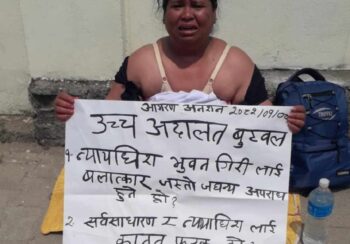 आमरण अनशन २०८२/०१/
उच्च अदालत बुटवल
१ न्यायाधिश भुवन गिरी लाई
बलात्कार जस्तो जघन्य अपराध
हुने हो?
२ सर्वसाधारण र न्यायाधिश लाई
कानून फरक हो